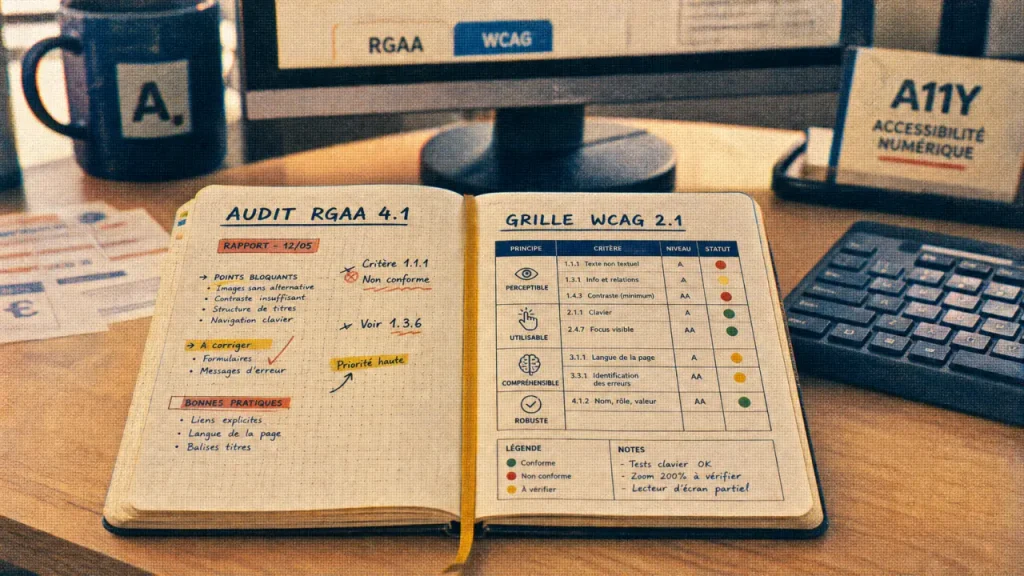 A.
RGAA
WCAG
A11Y
ACCESSIBILITÉ
NUMÉRIQUE
AUDIT RGAA 4.1
RAPPORT - 12/05
→ POINTS BLOQUANTS
• Images sans alternative
• Contraste insuffisant
• Structure de titres
• Navigation clavier
→ A corriger
• Formulaires
• Messages d'erreur
BONNES PRATIQUES
• Liens explicites
• Langue de la page
• Balises titres
Critère 1.1.1
Non conforme
Voir 1.3.6
Priorité haute
GRILLE WCAG 2.1
PRINCIPE CRITÈRE NIVEAU STATUT
PERCEPTIBLE
1.1.1 Texte non textuel A
1.3.1 Info et relations A
1.4.3 Contraste (minimum) AA
UTILISABLE
2.1.1 Clavier A
2.4.7 Focus visible AA
COMPRÉHENSIBLE
3.1.1 Langue de la page A
3.3.1 Identification
des erreurs AA
ROBUSTE
4.1.2 Nom, rôle, valeur AA
LÉGENDE
Conforme
Non conforme
À vérifier
NOTES
- Tests clavier OK
- Zoom 200% à vérifier
- Lecteur d'écran partiel
€